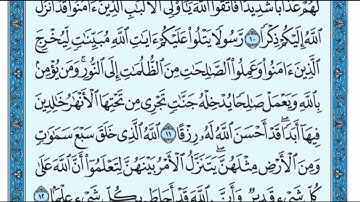 لَهُمْ عَذَابًا شَدِيدًا فَاتَّقُوا اللَّهَ يَٰٓأُو۟لِى الْأَلْبَٰبِ الَّذِينَ ءَامَنُوا قَدْ أَنزَلَ
اللَّهُ إِلَيْكُمْ ذِكْرًا ١٠ رَّسُولًا يَتْلُوا عَلَيْكُمْ ءَايَٰتِ اللَّهِ مُبَيِّنَٰتٍ لِّيُخْرِجَ
الَّذِينَ ءَامَنُوا وَعَمِلُوا الصَّٰلِحَٰتِ مِنَ الظُّلُمَٰتِ إِلَى النُّورِ وَمَن يُؤْمِنۢ
بِاللَّهِ وَيَعْمَلْ صَٰلِحًا يُدْخِلْهُ جَنَّٰتٍ تَجْرِى مِن تَحْتِهَا الْأَنْهَٰرُ خَٰلِدِينَ
فِيهَآ أَبَدًا قَدْ أَحْسَنَ اللَّهُ لَهُۥ رِزْقًا ١١ اللَّهُ الَّذِى خَلَقَ سَبْعَ سَمَٰوَٰتٍ
وَمِنَ الْأَرْضِ مِثْلَهُنَّ يَتَنَزَّلُ الْأَمْرُ بَيْنَهُنَّ لِتَعْلَمُوٓا أَنَّ اللَّهَ عَلَىٰ
كُلِّ شَىْءٍ قَدِيرٌ وَأَنَّ اللَّهَ قَدْ أَحَاطَ بِكُلِّ شَىْءٍ عِلْمًۢا ١٢